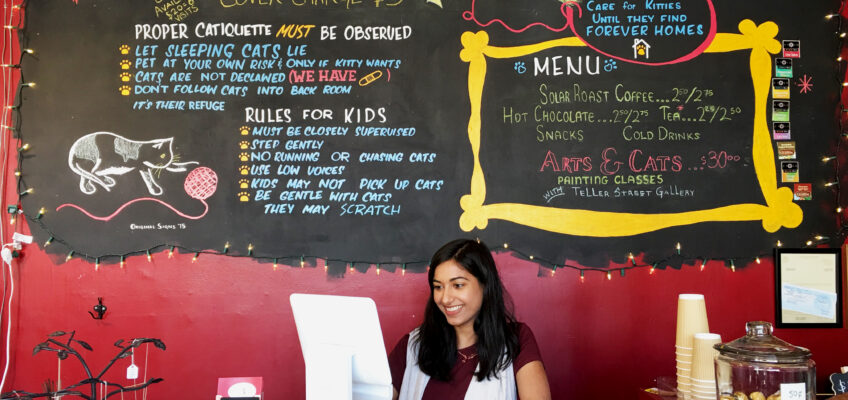 COVER CHARGE $
AVAILABLE
VISITS
PROPER CATIQUETTE MUST BE OBSERVED
LET SLEEPING CATS LIE
PET AT YOUR OWN RISK & ONLY IF KITTY WANTS
CATS ARE NOT DECLAWED (WE HAVE
DON'T FOLLOW CATS INTO BACK ROOM
IT'S THEIR REFUGE
RULES FOR KIDS
MUST BE CLOSELY SUPERVISED
STEP GENTLY
NO RUNNING OR CHASING CATS
USE LOW VOICES
KIDS MAY NOT PICK UP CATS
BE GENTLE WITH CATS
THEY MAY SCRATCH
ORIGINAL SIGNS '15
CARE FOR KITTIES
UNTIL THEY FIND
FOREVER HOMES
MENU
SOLAR ROAST COFFEE...2.50/2.75
HOT CHOCOLATE...2/2.75 TEA...2.25/2.50
SNACKS COLD DRINKS
ARTS & CATS...$30.00
PAINTING CLASSES
WITH TELLER STREET GALLERY
50¢